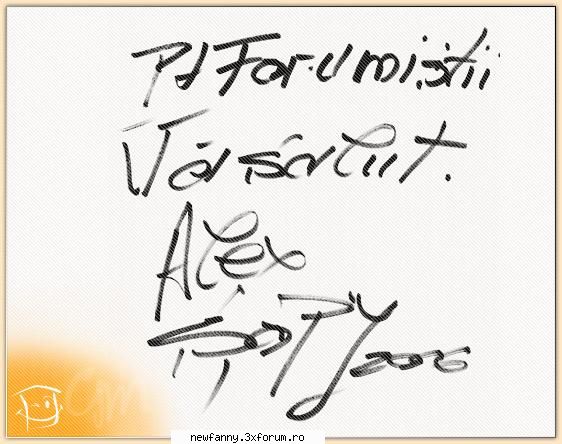 Pt Forumiștii
Vă salut.
Alex
2006
newfanny.3xforum.ro